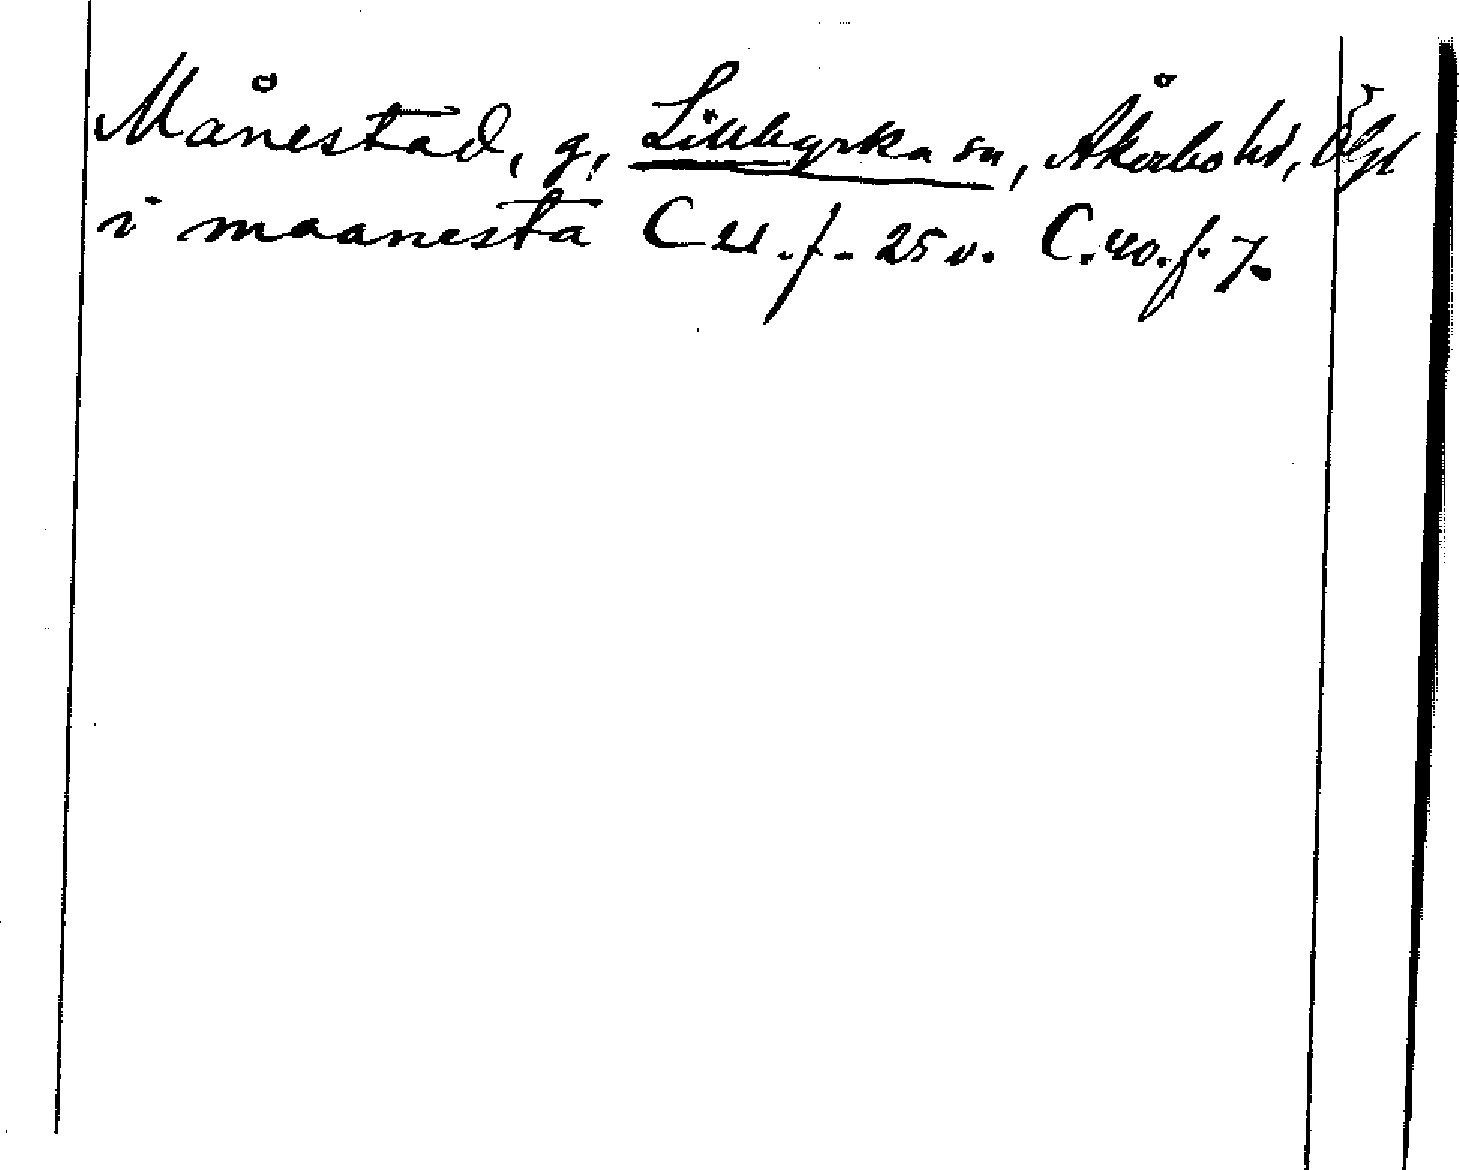 Månestad, g, Lillkyrka sn, Åkerbo hd, Ögl
i maanesta C 21. f. 25 v. C. 40. f. 7.